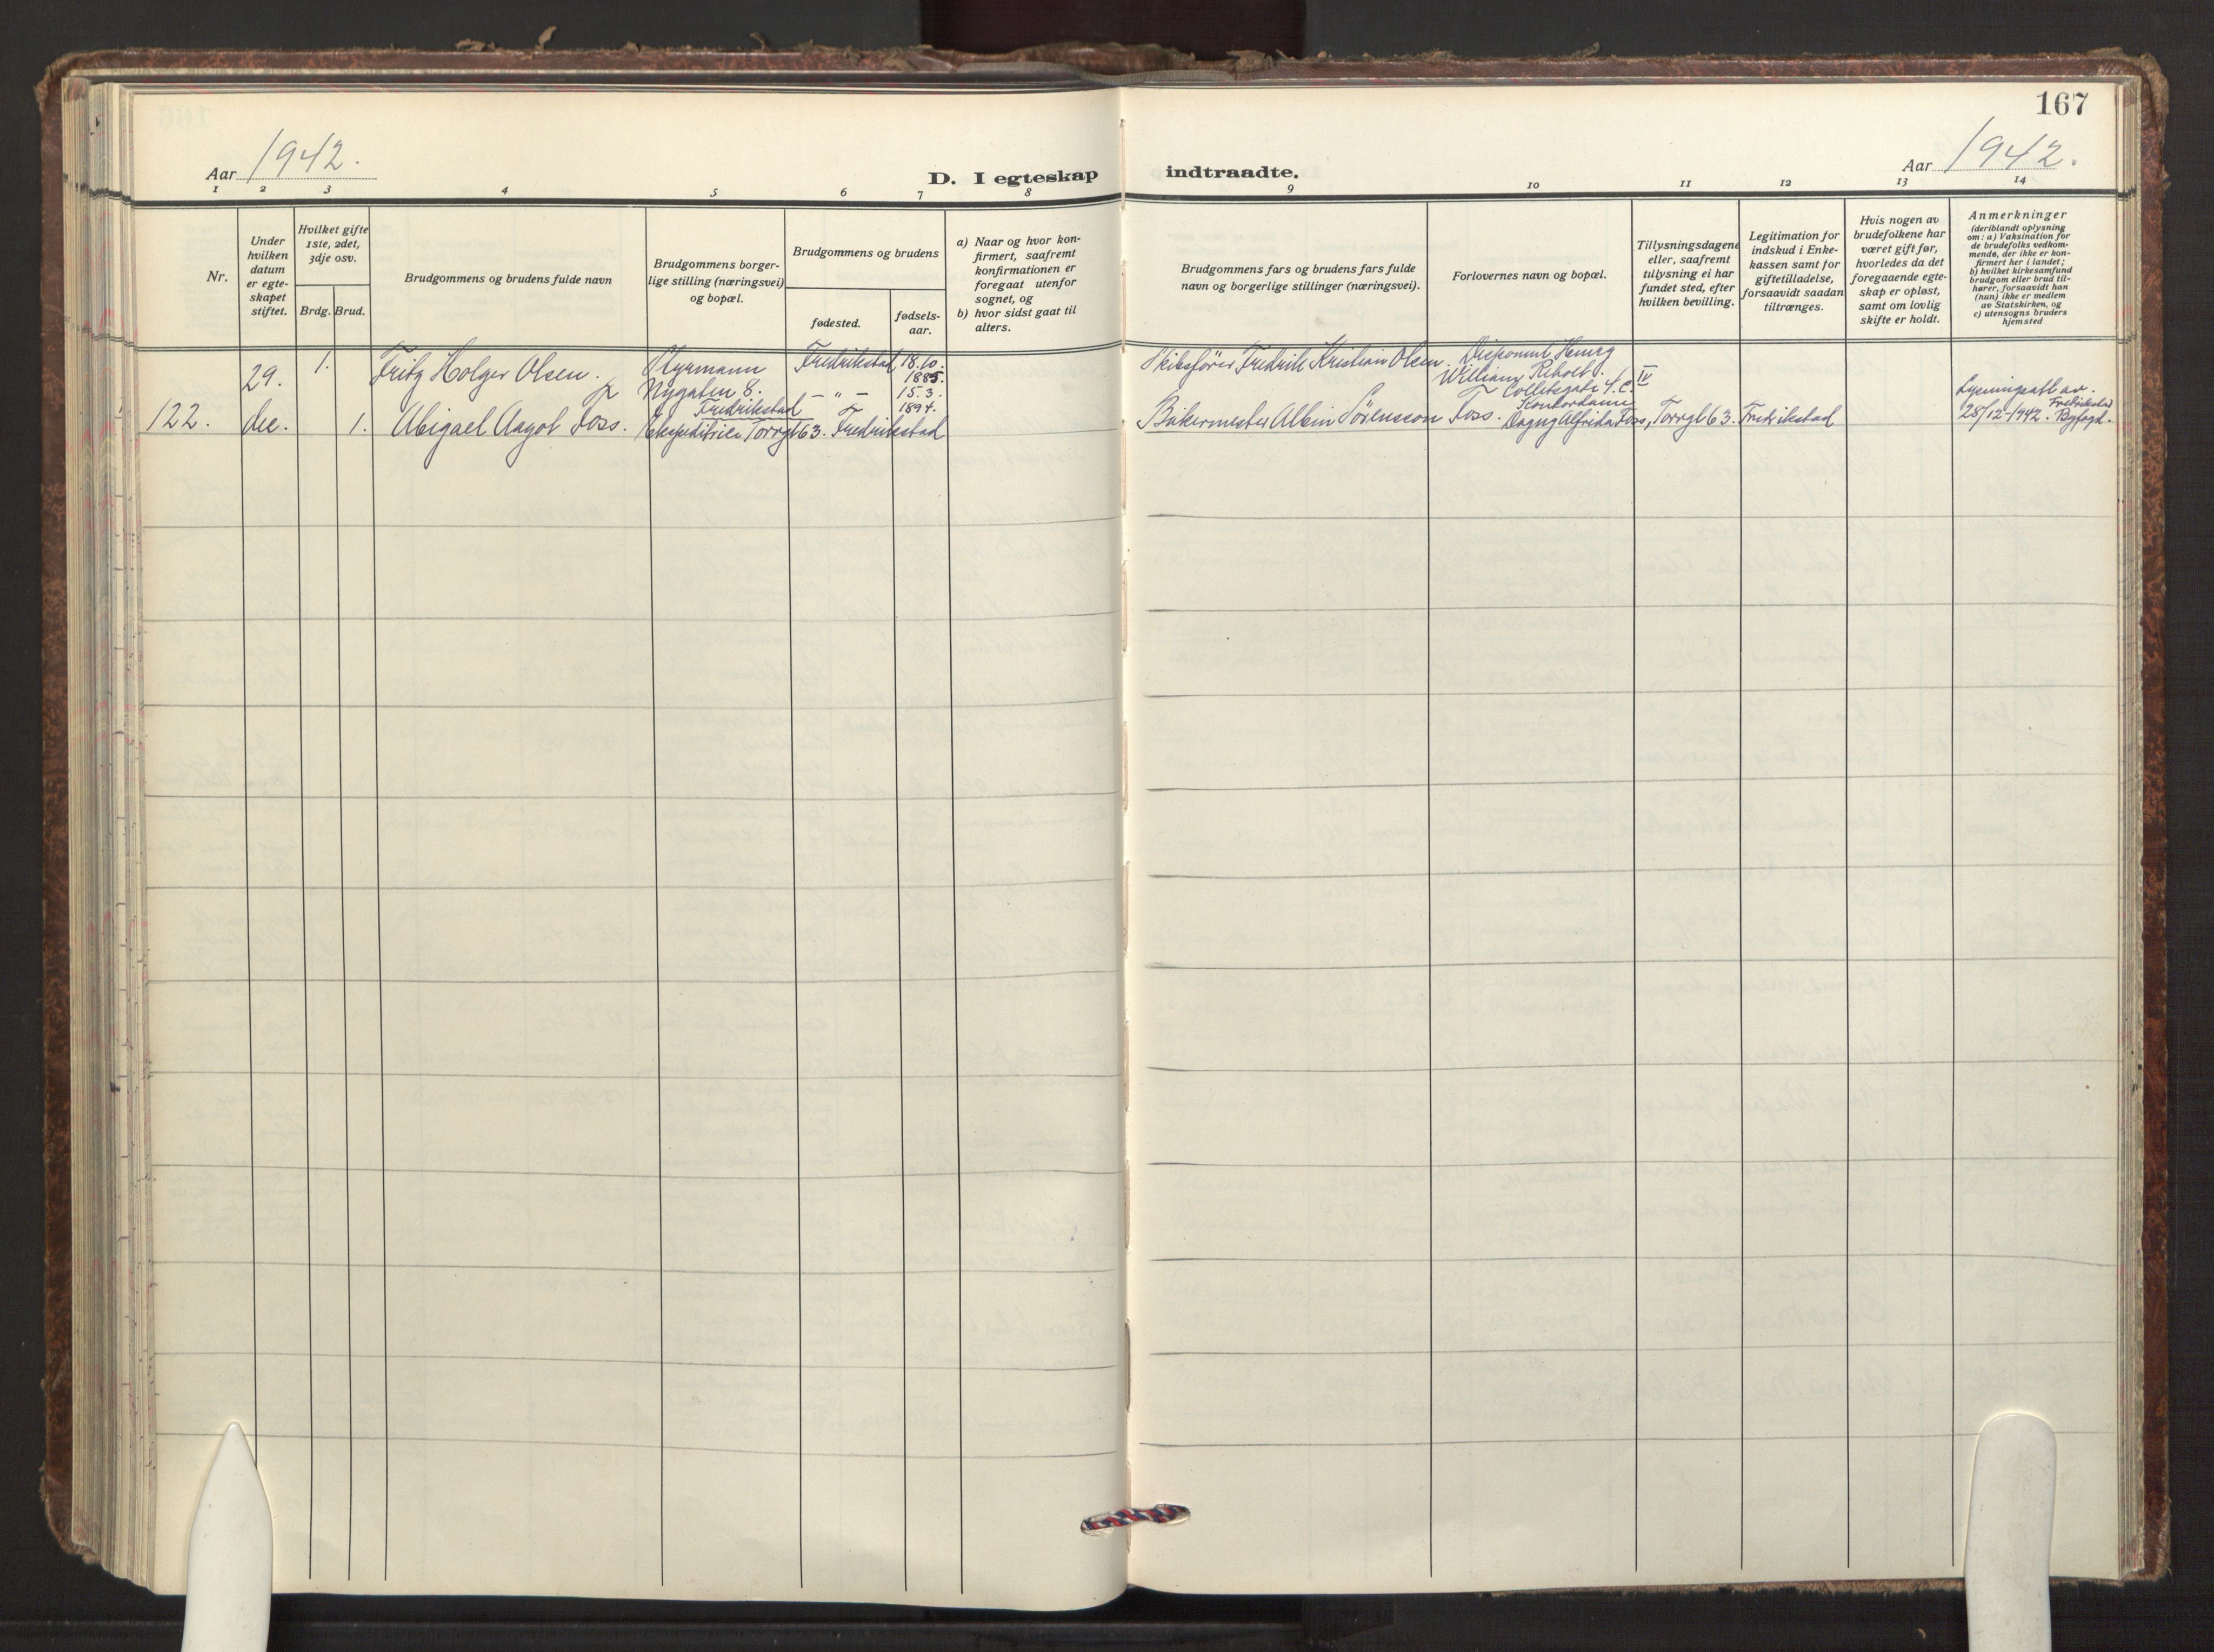 167
Aar 1942.
D. I egteskap indtraadte.
Aar 1942.
1 2 3 4 5 6 7 8 9 10 11 12 13 14
Nr.
Under
hvilken
datum
er egte-
skapet
stiftet.
Hvilket gifte
1ste, 2det,
3dje osv.
Brdg. Brud.
Brudgommens og brudens fulde navn
Brudgommens borger-
lige stilling (næringsvei)
og bopæl.
Brudgommens og brudens
fødested.
fødsels-
aar.
a) Naar og hvor kon-
firmert, saafremt
konfirmationen er
foregaat utenfor
sognet, og
b) hvor sidst gaat til
alters.
Brudgommens fars og brudens fars fulde
navn og borgerlige stillinger (næringsvei).
Forlovernes navn og bopæl.
Tillysningsdagene
eller, saafremt
tillysning ei har
fundet sted, efter
hvilken bevilling.
Legitimation for
indskud i Enke-
kassen samt for
giftetilladelse,
forsaavidt saadan
tiltrænges.
Hvis nogen av
brudefolkene har
været gift før,
hvorledes da det
foregaaende egte-
skap er opløst,
samt om lovlig
skifte er holdt.
Anmerkninger
(deriblandt oplysning
om: a) Vaksination for
de brudefolks vedkom-
mende, der ikke er kon-
firmert her i landet;
b) hvilket kirkesamfund
brudgom eller brud til-
hører, forsaavidt han
(hun) ikke er medlem
av Statskirken, og
c) utensogns bruders
hjemsted
122.
29.
dec.
1.
1.
Fritz Holger Olsen.
Abigael Aagot Foss.
Styrmann
Nygaten 8.
Fredrikstad
Ekspeditrice Torvgt 63. Fredrikstad
Fredrikstad
– " –
18.10.
1885.
15.3.
1894.
Skibsfører Fredrik Kristian Olsen.
Bakermester Albin Sörensson Foss.
Disponent Henry
William Reholt.
Colletsgate 4.c IV
Kontordame
Dagny Alfrida Foss, Torvgt 63. Fredrikstad
Lysningsatt av.
Fredrikstad
28/12-1942. Byfogd.